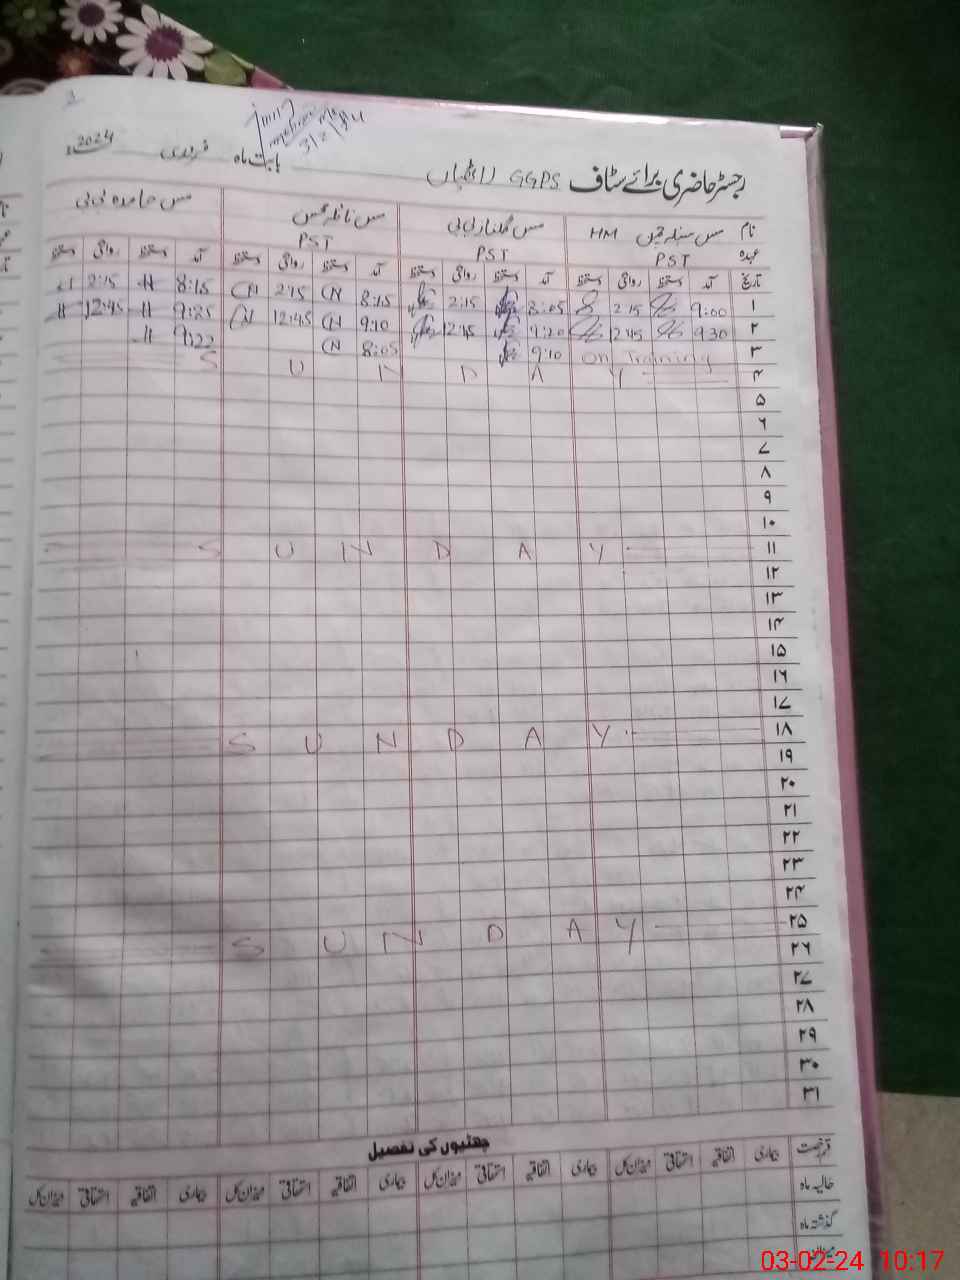 3/2/24
بابت ماہ فروری 2024ء
رجسٹر حاضری برائے سٹاف GGPS
نام مس HM مس گلناز بی بی مس نائلہ مس حامدہ بی بی
عہدہ PST PST PST
تاریخ آمد دستخط روانگی دستخط آمد دستخط روانگی دستخط آمد دستخط روانگی دستخط آمد دستخط روانگی دستخط
۱ 9:00 2:15 8:05 2:15 8:15 CN 2:15 CN 8:15 H 2:15 H
۲ 9:30 12:45 9:20 12:45 9:10 CN 12:45 CN 9:25 H 12:45 H
۳ On Training 9:10 8:05 CN 9:22 H
۴ S U N D A Y
۵
۶
۷
۸
۹
۱۰
۱۱ S U N D A Y
۱۲
۱۳
۱۴
۱۵
۱۶
۱۷
۱۸ S U N D A Y
۱۹
۲۰
۲۱
۲۲
۲۳
۲۴
۲۵ S U N D A Y
۲۶
۲۷
۲۸
۲۹
۳۰
۳۱
چھٹیوں کی تفصیل
قسم رخصت بیماری اتفاقیہ استحقاقی میزان کل بیماری اتفاقیہ استحقاقی میزان کل بیماری اتفاقیہ استحقاقی میزان کل بیماری اتفاقیہ استحقاقی میزان کل
حالیہ ماہ
گذشتہ ماہ
03-02-24 10:17